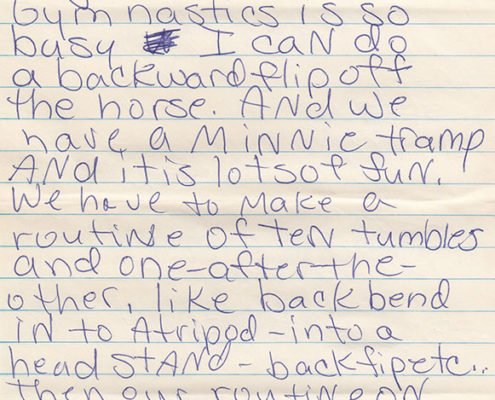 Gymnastics is so
busy I CAN do
a backward flip off
the horse. ANd we
have a MiNNie tramp
ANd it is lots of fuN.
We have to Make a
routiNe of TeN tumbles
and one-after-the-
other, like backbend
iN to Atripod-into a
head STANd-backfipetc..
Then our routine ON